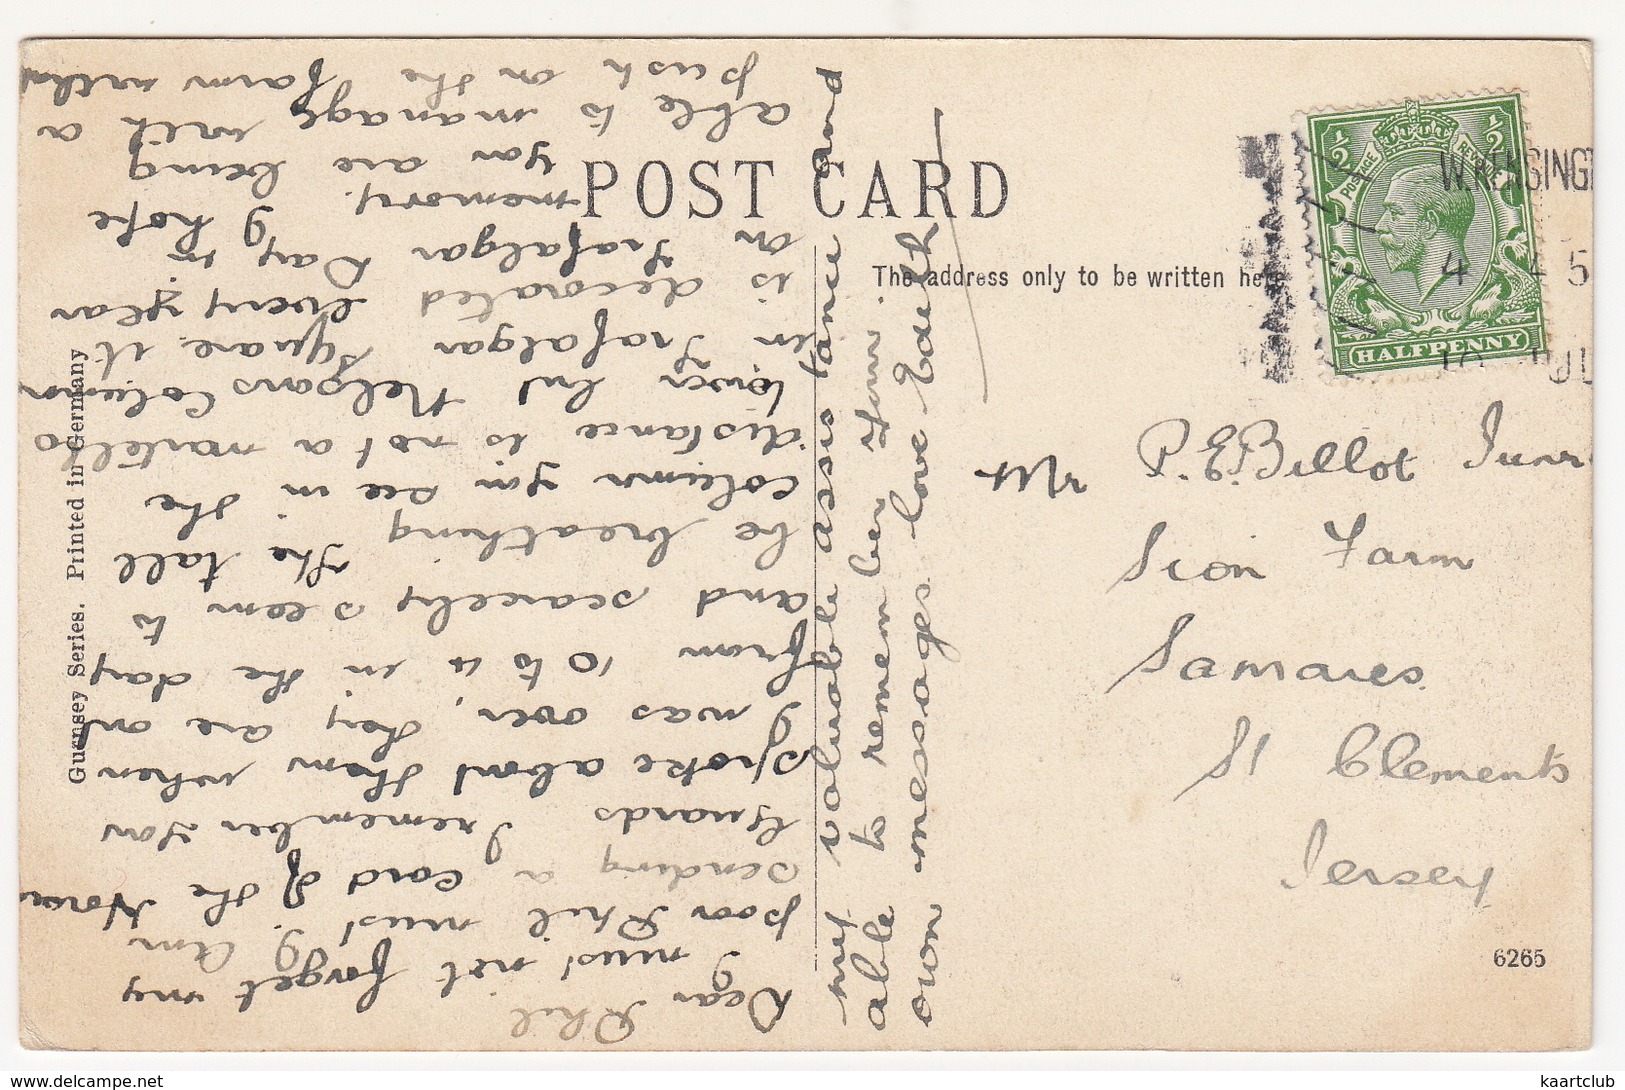 POST CARD
The address only to be written here
HALFPENNY
POSTAGE REVENUE
½ ½
W. KENSINGT
4 5
10 JUL
Mr P. E. Billot Junr
Sion Farm
Samares
St Clements
Jersey
6265
Guernsey Series. Printed in Germany
Dear Phil
I must not forget my
poor Phil must I. Am
sending a card of the Horse
Guards I remember you
spoke about them when
I was over, they are on
from 10 to 4 in the day
and scarcely seem to
be breathing The tall
column you see in the
distance is not a martello
tower but Nelsons Column
in Trafalgar Square. it
is decorated every year
on Trafalgar Day in
memory. I hope
you are being
able to manage with a
push on the farm without
my valuable assistance and
able to remember
own messages love Edith